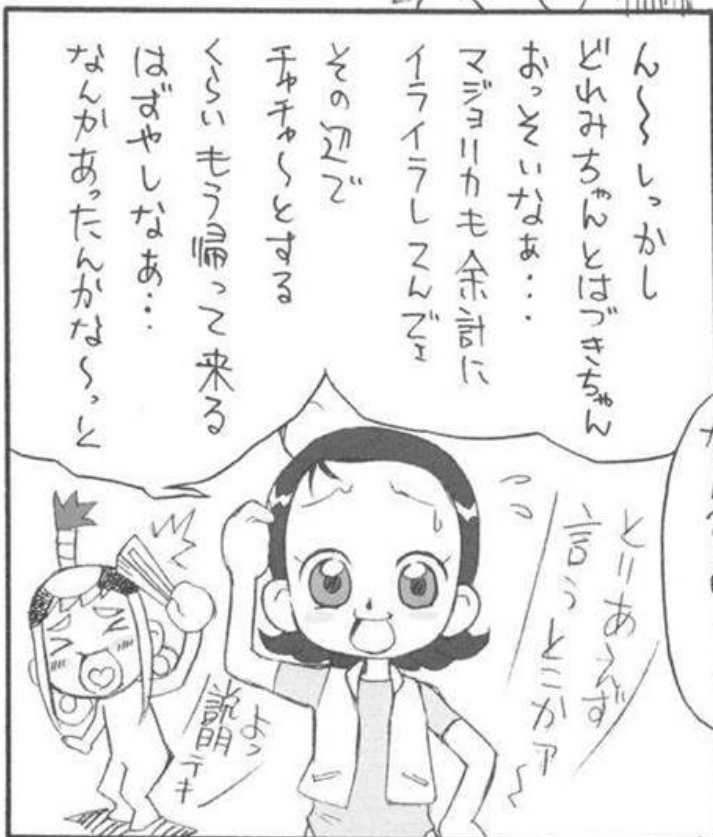 ん～～しっかし
どれみちゃんとはづきちゃん
おっそいなぁ・・・
マジョリカも余計に
イライラしてんでェ
その辺で
チャチャ～とする
くらいもう帰って来る
はずやしなぁ・・・
なんかあったんかな～っと
とりあえず
言うとこかァ
よっ
説明テキ